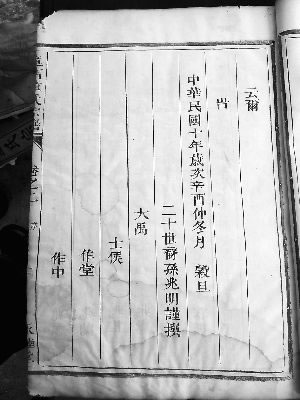 云爾
旹
中華民國十年歲次辛酉仲冬月 穀旦
二十世裔孫兆明謹撰
大禹
士俟
作堂
作中